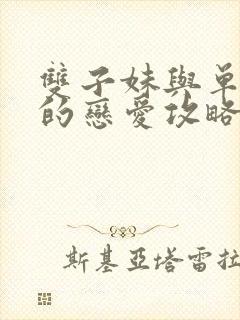 雙子妹與單
的戀愛攻略
斯基亞塔雷拉